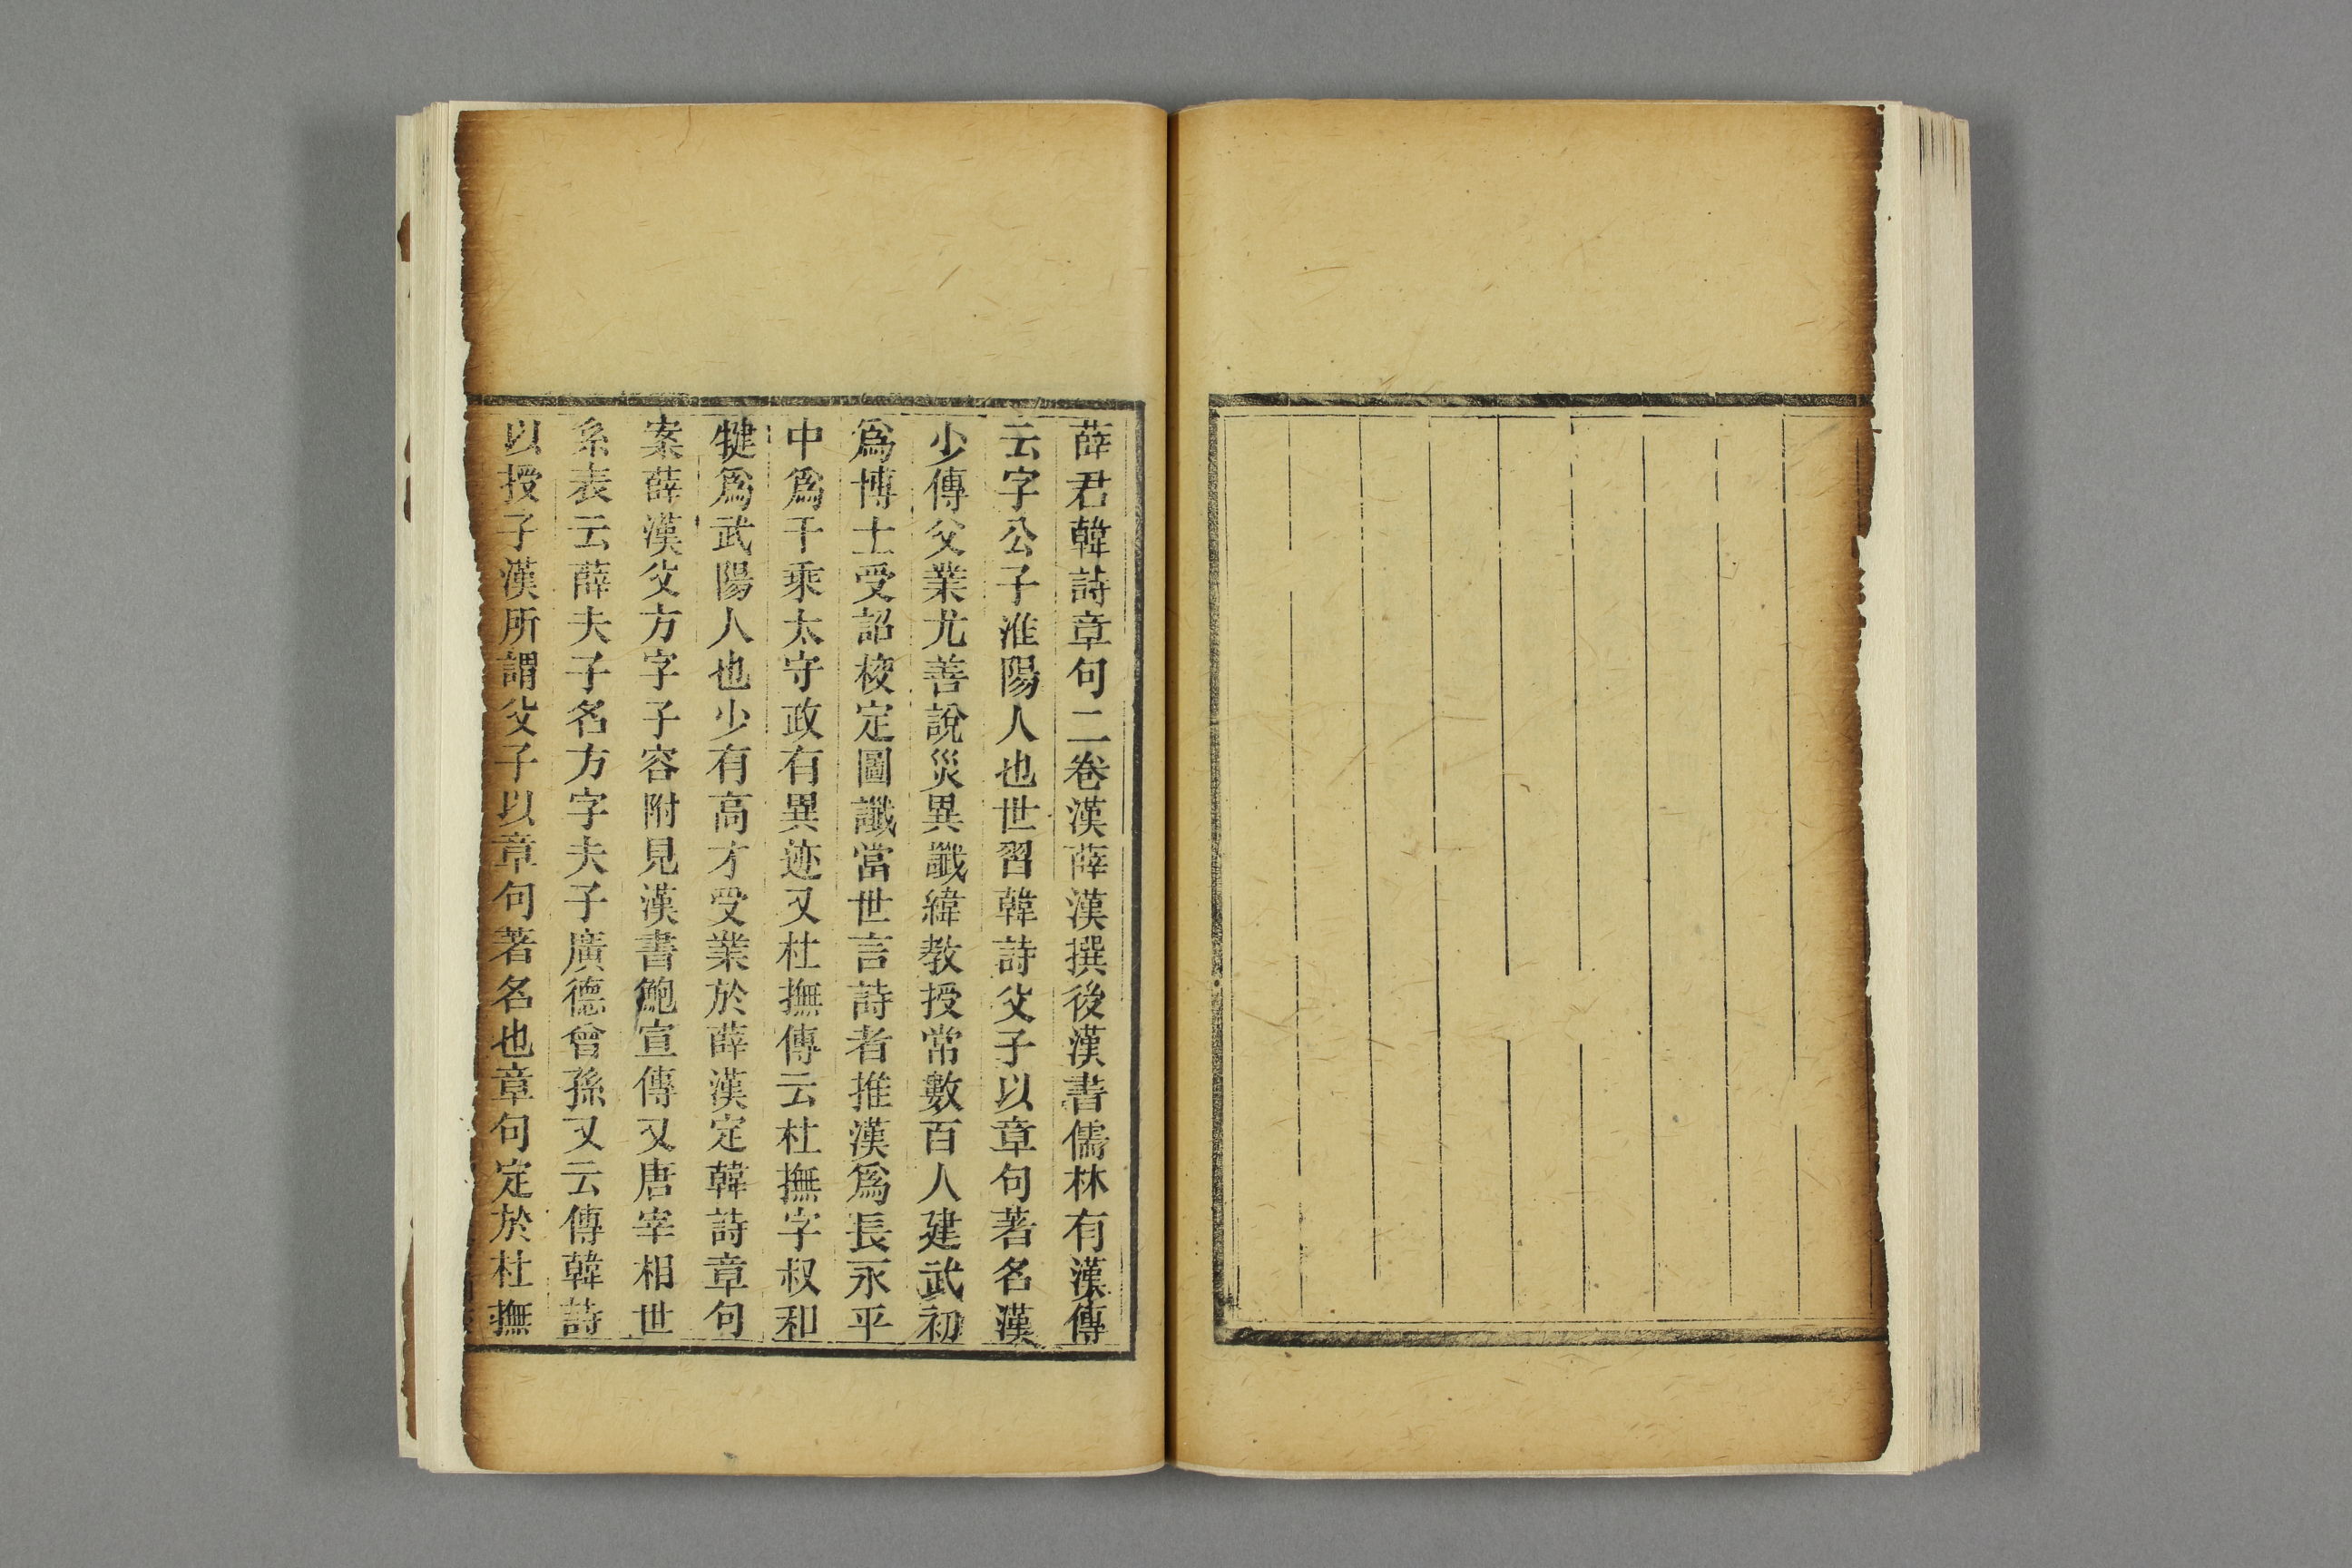 薛君韓詩章句二卷漢薛漢撰後漢書儒林有漢傳
云字公子淮陽人也世習韓詩父子以章句著名漢
少傳父業尤善說災異讖緯教授常數百人建武初
爲博士受詔校定圖讖當世言詩者推漢爲長永平
中爲千乘太守政有異迹又杜撫傳云杜撫字叔和
犍爲武陽人也少有高才受業於薛漢定韓詩章句
案薛漢父方字子容附見漢書鮑宣傳又唐宰相世
系表云薛夫子名方字夫子廣德曾孫又云傳韓詩
以授子漢所謂父子以章句著名也章句定於杜撫